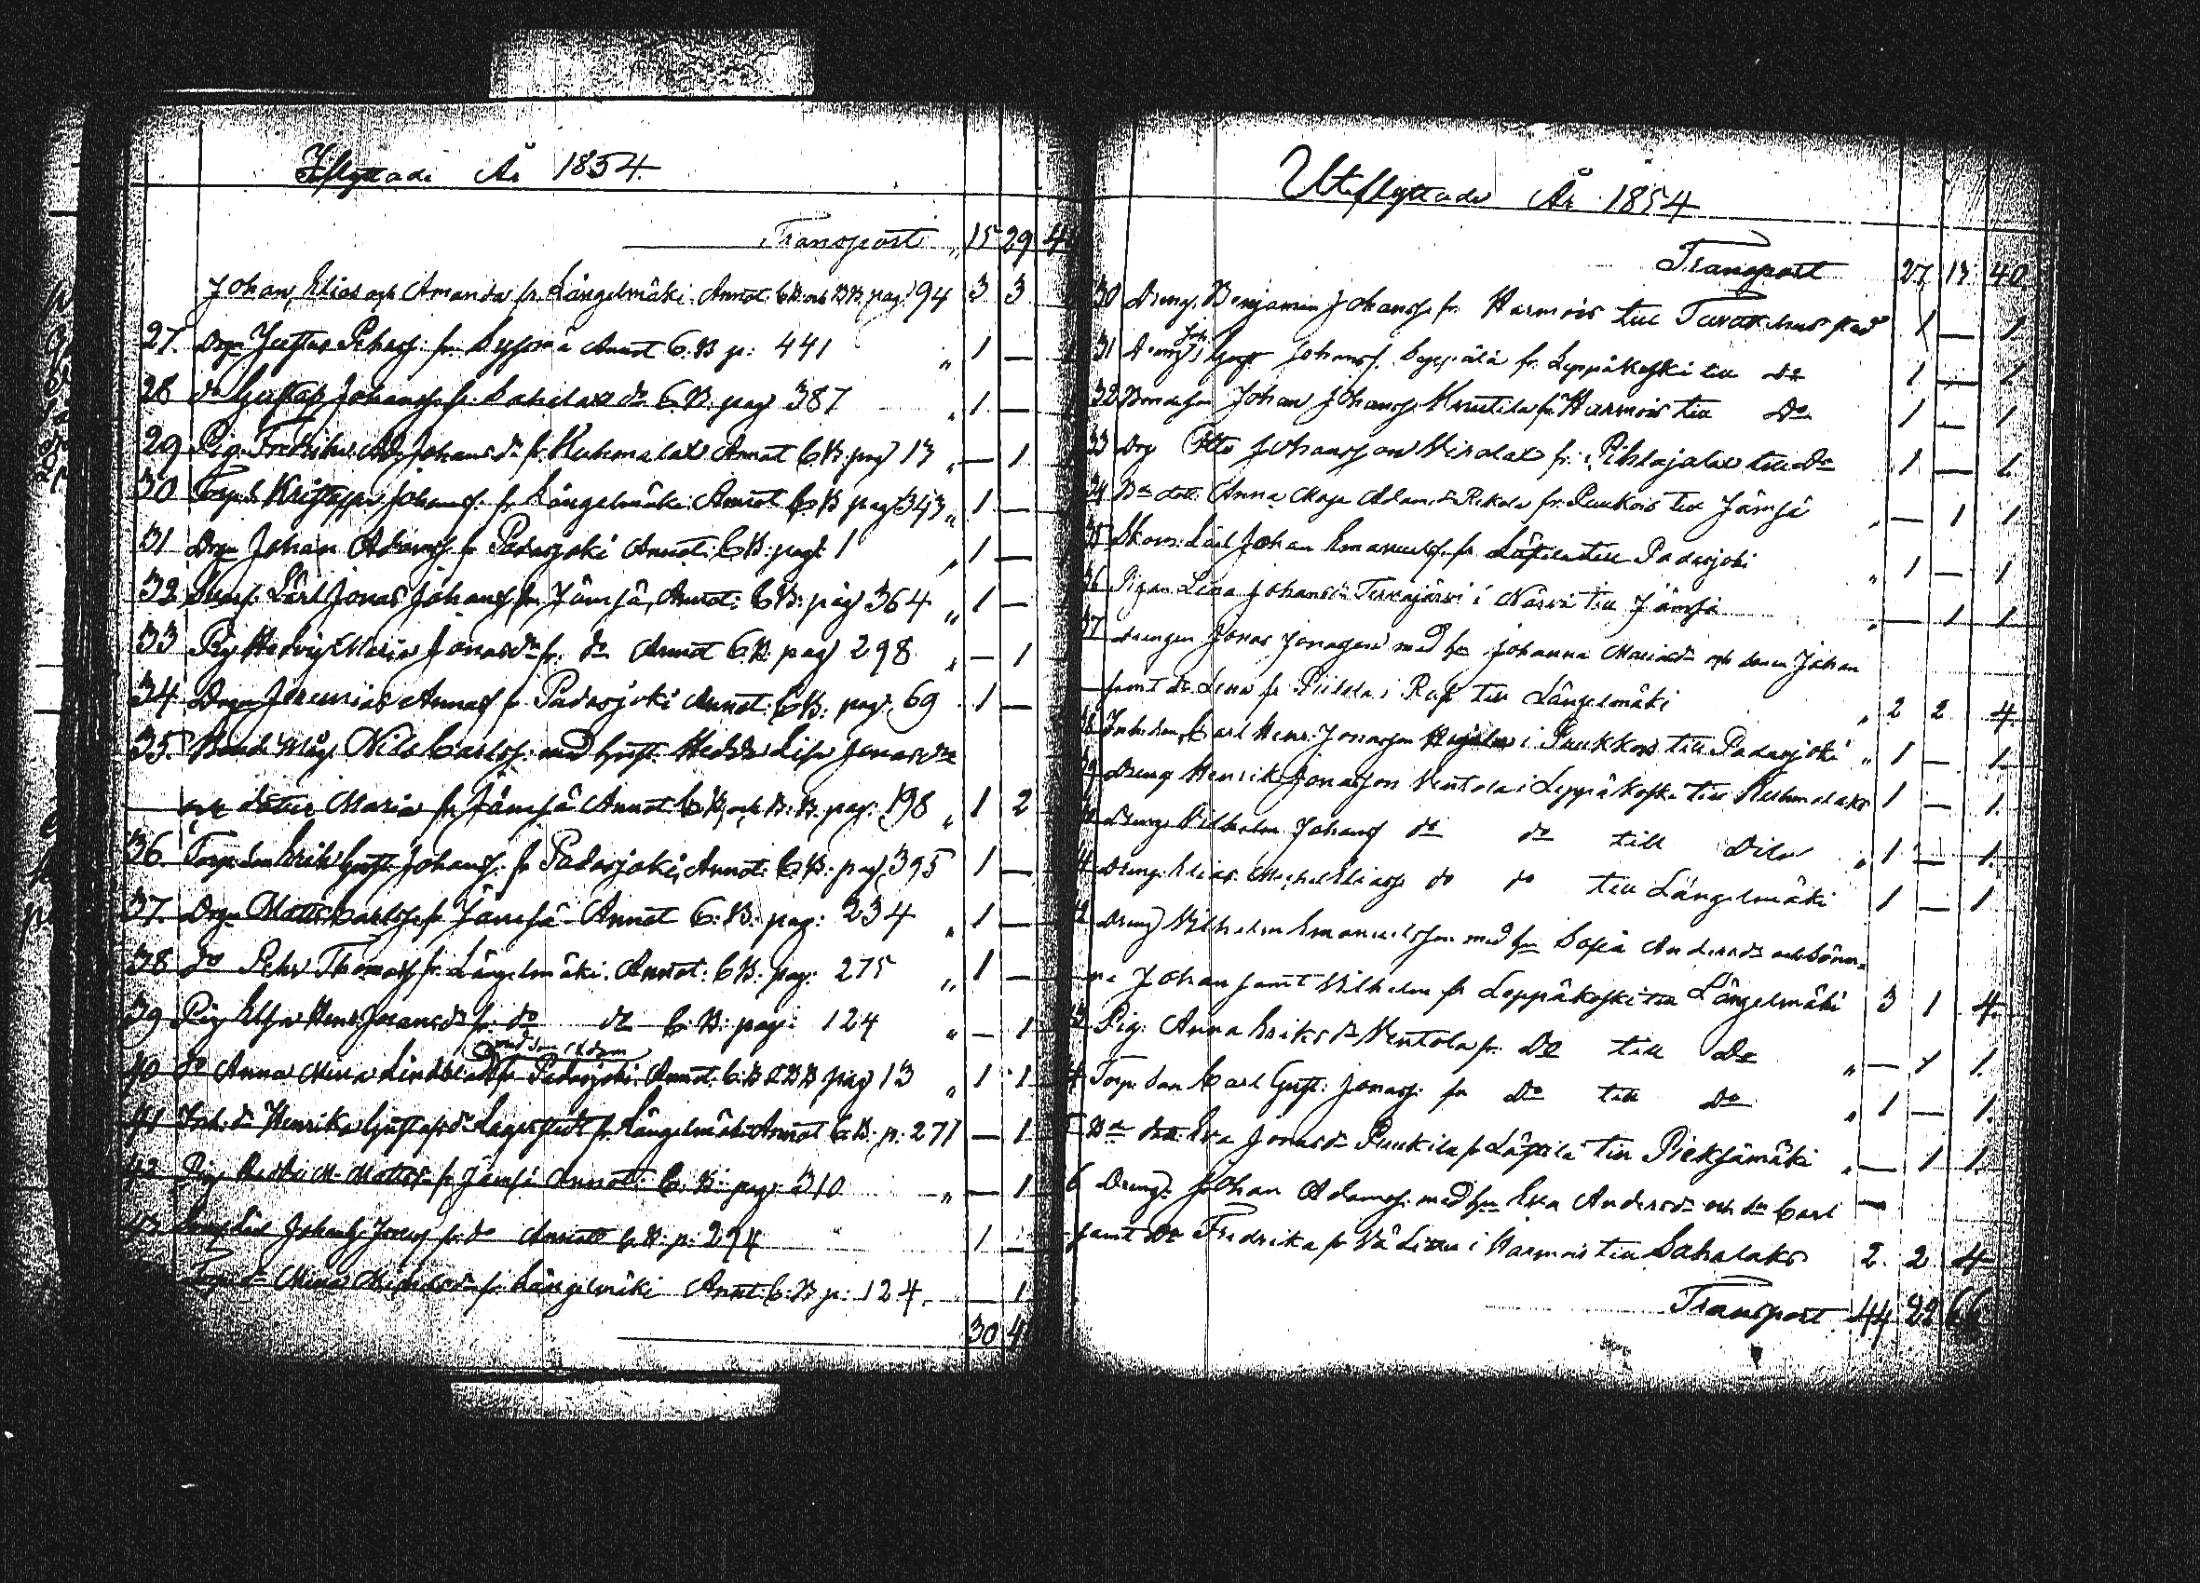 Inflyttade År 1854
Transport „ 15 29 4
Johan, Elias och Amanda fr. Längelmäki. Annot. C.B. och B.B. pag. 94 3 3
27. Drgn Justus Pehrss: fr. Sysmä Annot C.B p: 441 „ 1 —
28 do Gustaf Johanss. fr. Sahalax do C.B. pag 387 „ 1 —
29 Pig. Fredrika Johansdr fr. Kuhmalax Annot C.B. pag 13 „ — 1
30 Torp. Kristoffer Johanss. fr. Längelmäki Annot C.B pag 343 „ 1 —
31 Drgn Johan Adamss. fr Padasjoki Annot: C.B: pag: 1 „ 1 —
32 Lärl Jonas Johanss fr. Jämsä, Annot: C.B: pag 364 „ 1 —
33 Pig. Hedvig Maria Jonasdr fr. do Annot C.B. pag 298 „ — 1
34 Drgn Jeremias Annass fr Padasjoki Annot: C.B: pag. 69 1 —
35 Bond Måg. Nils Carlss. med hust. Hedda Lisa Jonasdr
och dotter Maria fr. Jämsä Annot. C.B. och B.B. pag: 198 „ 1 2
36. Torp. son Erik Gust. Johanss. fr Padasjoki, Annot: C.B: pag 395 1 —
37. Drgn Matts Carlss. fr Jämsä Annot C.B: pag: 234 „ 1 —
38 do Pehr Thomass. fr. Längelmäki. Annot: C.B. pag: 275 „ 1 —
39 Pig Henr. Johansdr fr. do do C.B: pag: 124 „ — 1
med son Adam
40 do Anna Lindblad fr Padasjoki, Annot: C.B & BB pag 13 „ 1 1
41 Inh. dr Henrika Gustafsdr Lagerstedt fr. Längelmäki Annot C.B. p: 271 — 1
42 Pig Hedda M. Mattsdr fr Jämsä Annot: C.B: pag: 310 „ — 1
43 Johan Josefss fr. do Annot C.B. p: 294 1 —
Torp. dr Mina Michelsdr fr. Längelmäki Annot: C.B p: 124. — 1
30 4
Utflyttade År 1854
Transport 27 13 40
30 Dreng. Benjamin Johanss. fr. Harmois till Tavastehus stad 1 — 1
31 Dreng Joh. Gust Johanss. Seppälä fr. Leppäkoski till do 1 — 1
32 Bondeson Johan Johanss. Knutila fr. Harmois till do 1 — 1
33 Drg Otto Johansson fr. Pihlajalax till do 1 — 1.
34 Bde dott. Anna Maja Adamsdr Rekola fr. Puukois till Jämsä „ — 1 1
35 Skom: Lärl Johan Emanuelss. fr. Läpilä till Padasjoki „ 1 — 1
36 Pigan Lisa Johansdr i till Jämsä „ — 1 1
37 Drengen Jonas Jonasson med hu Johanna Mariasdr och sonen Johan
samt dr Lena fr. i till Längelmäki „ 2 2 4
38 Carl Henr. Jonasson i Puukkois till Padasjoki „ 1 — 1
39 Dreng Henrik Jonasson Ventola i Leppäkoski till Kuhmalaks 1 — 1.
40 Dreng Vilhelm Johanss do do till Dito „ 1 — 1.
41 Dreng. Elias Michel Eliass. do do till Längelmäki 1 — 1.
42 Dreng Vilhelm Emanuelsson med hu Sofia Andersdr och söner-
na Johan samt Vilhelm fr Leppäkoski till Längelmäki 3 1 4.
43 Pig: Anna Eriksdr Ventola fr. do till do „ — 1 1.
44 Torp. son Carl Gust: Jonass. fr do till do „ 1 — 1.
5 Bde dott: Eva Jonasdr Puukila fr Läpilä till Pieksämäki „ — 1 1.
6 Dreng. Johan Adamss. med hu Eva Andersdr och sn Carl —
samt dr Fredrika fr i Harmois till Sahalaks 2. 2 4
Transport 44 22 66